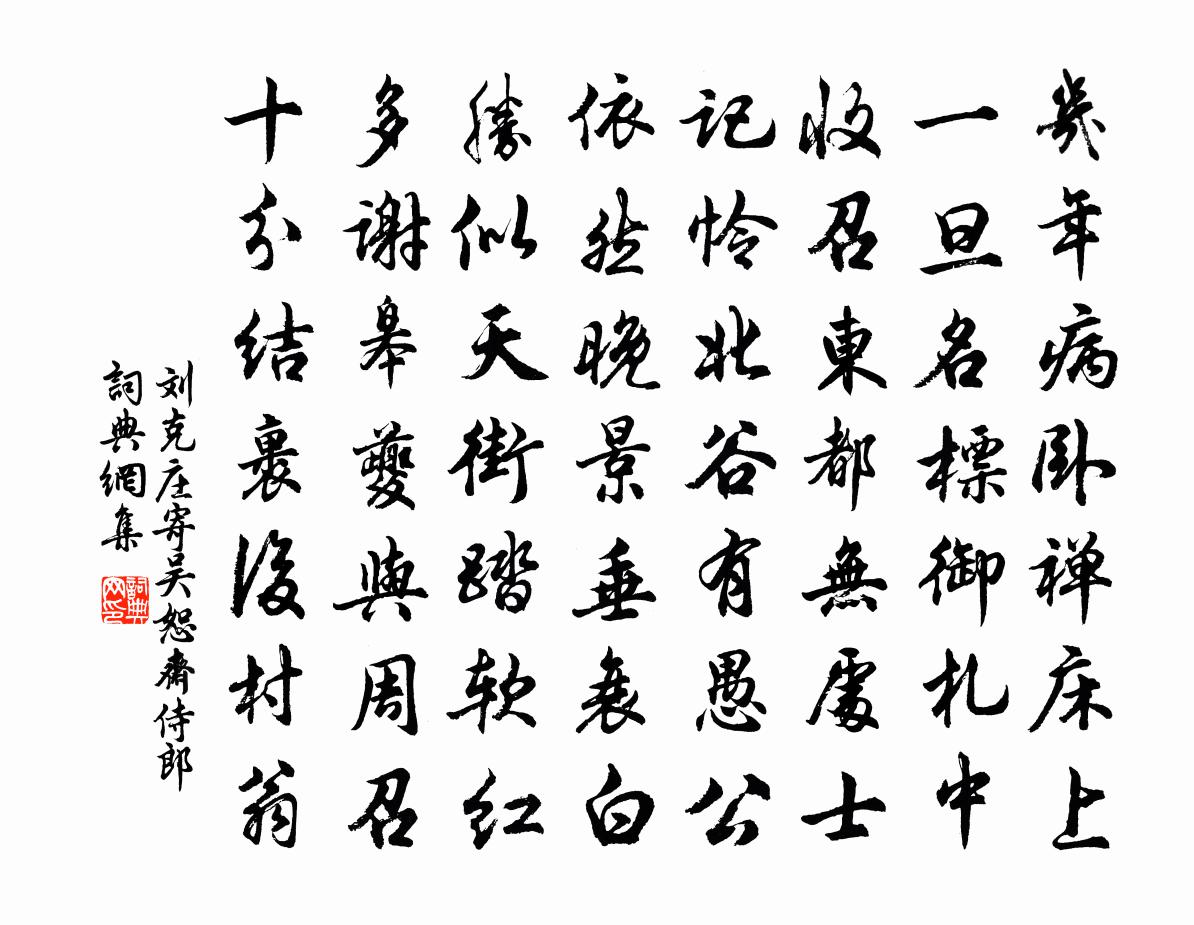 幾年病卧禅床上
一旦名標御札中
收召東都無處士
記怜北谷有愚公
依然晚景垂衰白
勝似天街踏软红
多謝皋夔與周召
十分结裹後村翁
刘克庄寄吴恕齋侍郎
詞典網集
詞典网印